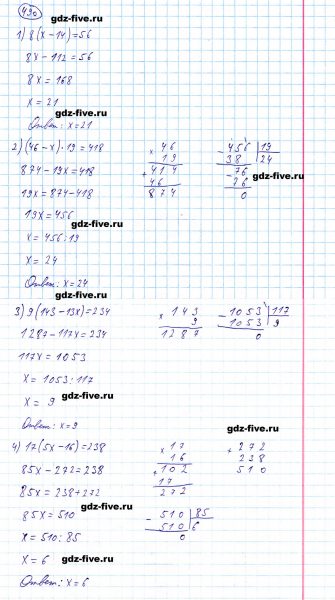 490
gdz-five.ru
1) 8(x-14)=56
8x-112=56
8x=168
gdz-five.ru
x=21
Ответ: x=21
gdz-five.ru
2) (46-x)·19=418
874-19x=418
19x=874-418
19x=456
gdz-five.ru
x=456:19
x=24
Ответ: x=24
× 46
19
+ 414
46
874
- 456 | 19
38 | 24
- 76
76
0
gdz-five.ru
gdz-five.ru
3) 9(143-13x)=234
1287-117x=234
117x=1053
x=1053:117
gdz-five.ru
x=9
Ответ: x=9
× 143
9
1287
- 1053 | 117
1053 | 9
0
gdz-five.ru
4) 17(5x-16)=238
85x-272=238
85x=238+272
gdz-five.ru
85x=510
x=510:85
x=6
Ответ: x=6
× 17
16
+ 102
17
272
+ 272
238
510
- 510 | 85
510 | 6
0
gdz-five.ru
gdz-five.ru